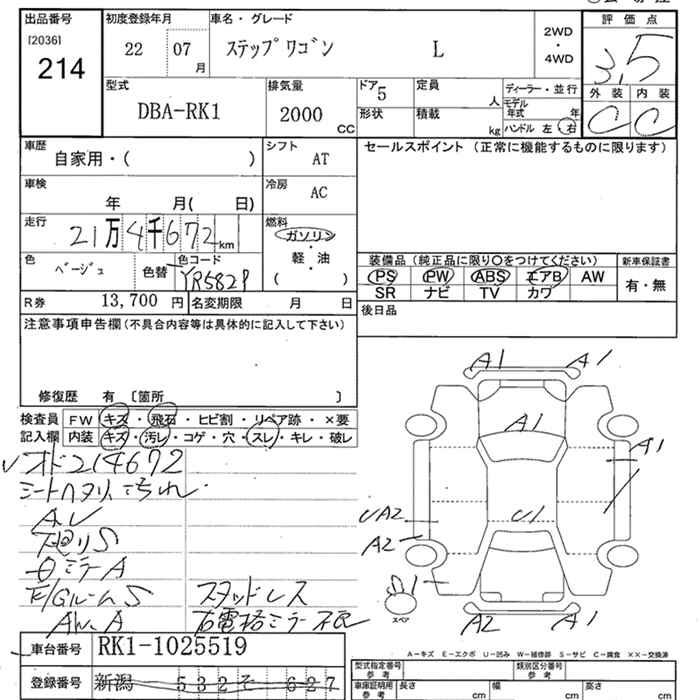 出品番号
[2036]
214
初度登録年月
22 07
月
車名・グレード
ステップワゴン L
2WD
・
4WD
評価点
3.5
外装 内装
C C
型式
DBA-RK1
排気量
2000
CC
ドア
5
形状
定員
人
積載
kg
ディーラー・並行
モデル
年式 年
ハンドル 左 右
車歴
自家用・( )
シフト
AT
セールスポイント (正常に機能するものに限ります)
車検
年 月( 日)
冷房
AC
走行
21万4千672km
燃料
ガソリン
・
軽・油
( )
色
ベージュ
色替
色コード
YR582P
装備品(純正品に限り○をつけてください)
新車保証書
PS PW ABS エアB AW
SR ナビ TV カワ
有・無
R券 13,700 円
名変期限 月 日
後日品
注意事項申告欄(不具合内容等は具体的に記入して下さい)
修復歴 有 〔箇所 〕
検査員
記入欄
FW キズ・飛石・ヒビ割・リペア跡・×要
内装 キズ・汚レ・コゲ・穴・スレ・キレ・破レ
オド214672
シートヘタリ・汚れ
下廻りS
ミラーA
E/GルームS
スタッドレス
右電格ミラー不良
A1 A1
A1
A1
UA2
U1
A2
S1
スペア
A2 A1
A-キズ E-エクボ U-凹み W-補修跡 S-サビ C-腐食 ××-交換済
車台番号
RK1-1025519
登録番号
新潟 532 そ 627
型式指定番号
参考
類別区分番号
参考
車庫証明用
参考
長さ cm
幅 cm
高さ cm